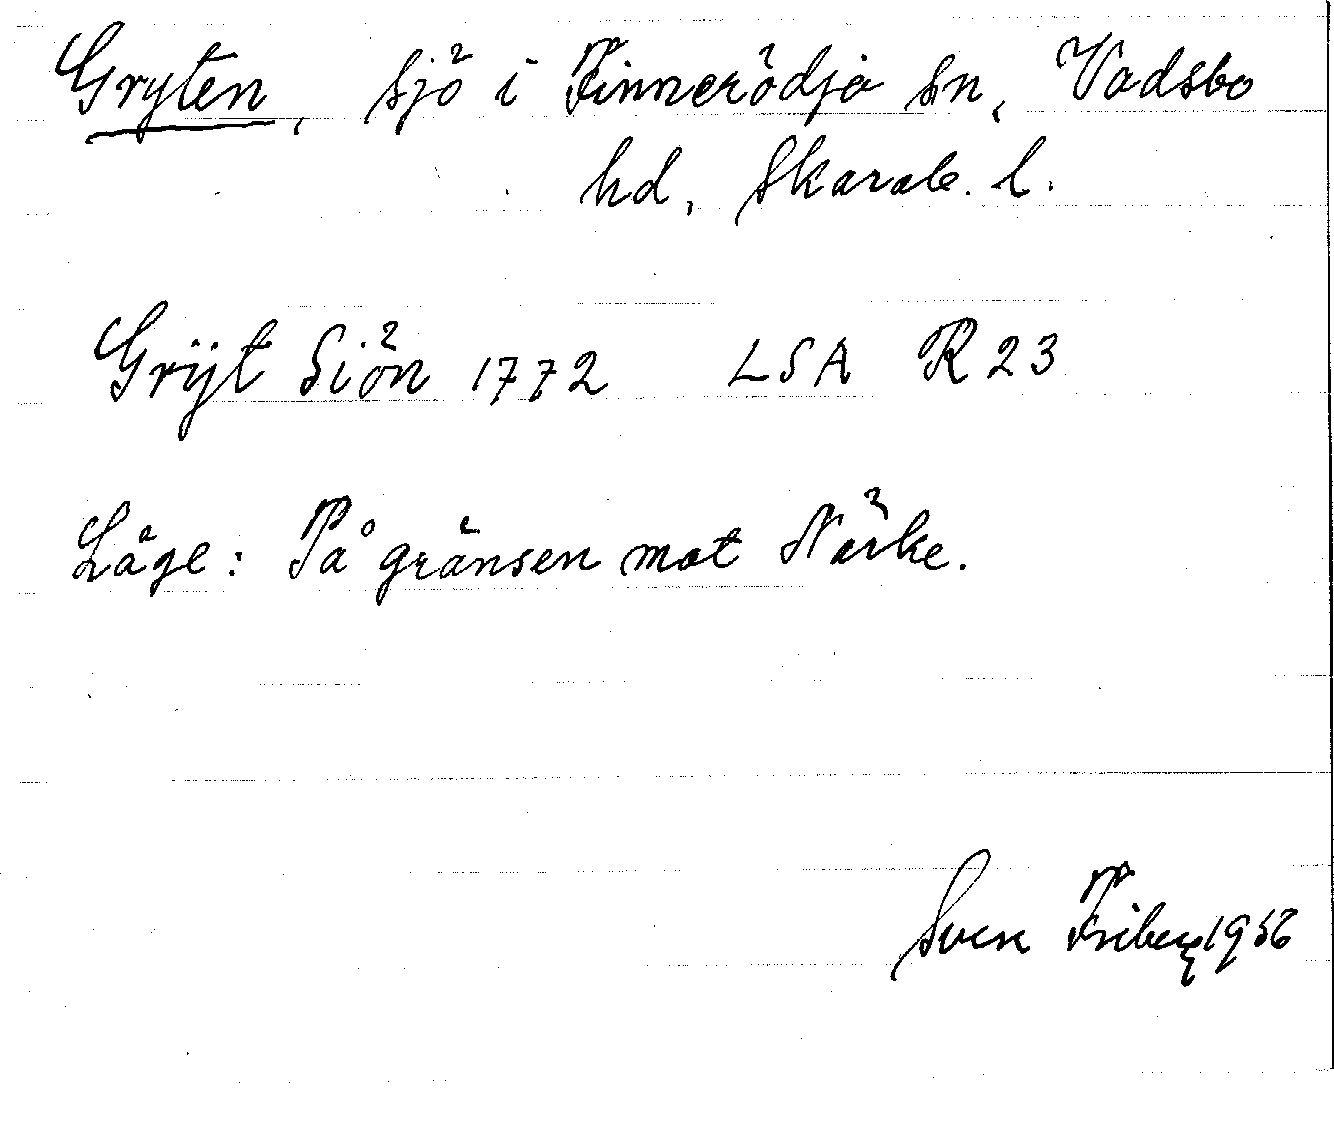 Gryten, sjö i Finnerödja sn, Vadsbo
hd, Skarab. l.
Grÿt Siön 1772 LSA R23
Läge: På gränsen mot Närke.
Sven Friberg 1956